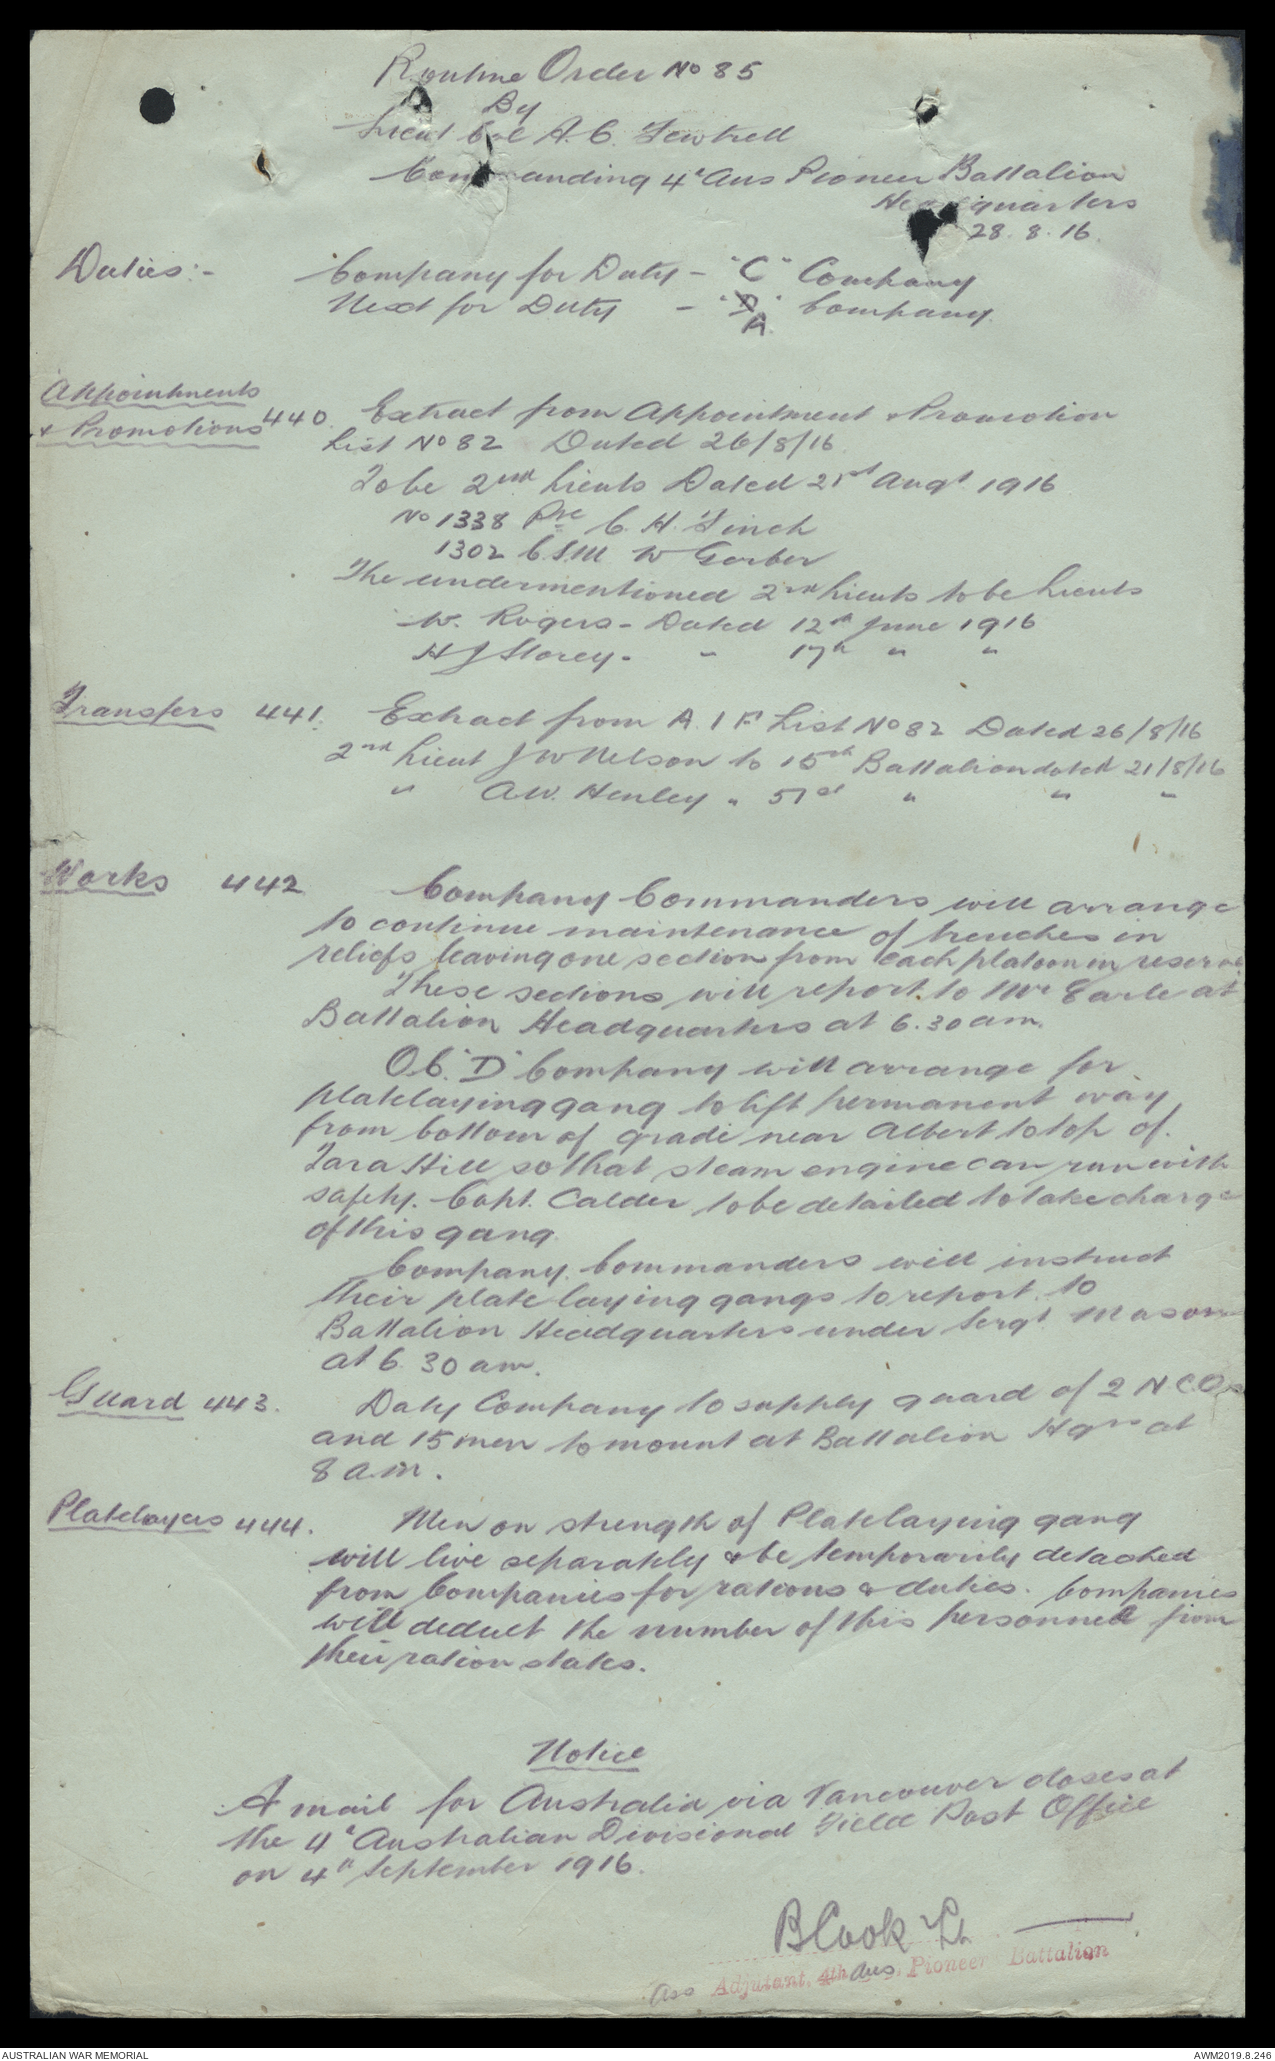 Routine Order No 85
By
Lieut Col A.C. Fewtrell
Commanding 4th Aus Pioneer Battalion
Headquarters
28.8.16.
Duties:- Company for Duty - "C" Company
Next for Duty - "D" Company.
A.
Appointments
& Promotions 440. Extract from Appointment & Promotion
List No 82 Dated 26/8/16.
To be 2nd Lieuts Dated 21st Augt 1916
No 1338 Pte C. H. Finch
1302 C.S.M W Gerber
The undermentioned 2nd Lieuts to be Lieuts
W. Rogers - Dated 12th June 1916
H J Storey - " 17th " "
Transfers 441. Extract from A.I.F. List No 82 Dated 26/8/16
2nd Lieut J W Nelson to 15th Battalion dated 21/8/16
" A.W. Henley " 51st " " "
Works 442 Company Commanders will arrange
to continue maintenance of trenches in
reliefs leaving one section from each platoon in reserve
These sections will report to Mr Earle at
Battalion Headquarters at 6.30 am.
O.C. "D" Company will arrange for
platelaying gang to lift permanent way
from bottom of grade near Albert to top of
Tara Hill so that steam engine can run with
safety. Capt. Calder to be detailed to take charge
of this gang
Company Commanders will instruct
their plate laying gangs to report to
Battalion Headquarters under Sergt. Mason
at 6.30 am.
Guard 443. Duty Company to supply guard of 2 N.C.Os
and 15 men to mount at Battalion Hqrs at
8 a.m.
Platelayers 444. Men on strength of Platelaying gang
will live separately & be temporarily detached
from Companies for rations & duties. Companies
will deduct the number of this personnel from
their ration states.
Notice
A mail for Australia via Vancouver closes at
the 4th Australian Divisional Field Post Office
on 4th September 1916.
B Cook Lt
Ass Adjutant, 4th Aus. Pioneer Battalion
AUSTRALIAN WAR MEMORIAL AWM2019.8.246